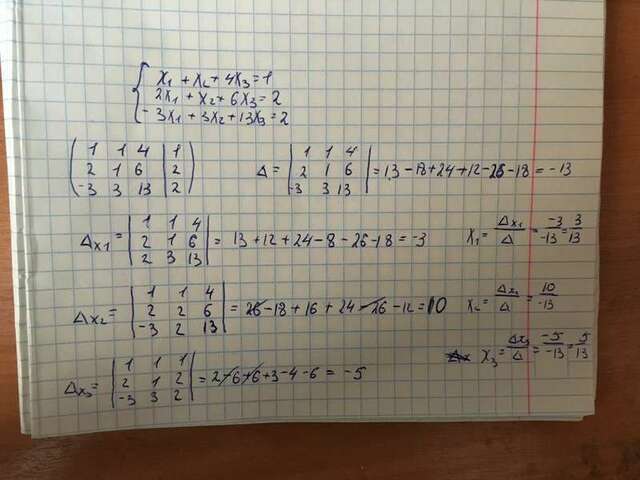 { x₁ + x₂ + 4x₃ = 1
2x₁ + x₂ + 6x₃ = 2
-3x₁ + 3x₂ + 13x₃ = 2
( 1 1 4 | 1
2 1 6 | 2
-3 3 13 | 2 )
Δ = | 1 1 4
2 1 6
-3 3 13 | = 13 - 18 + 24 + 12 - 26 - 18 = -13
Δx₁ = | 1 1 4
2 1 6
2 3 13 | = 13 + 12 + 24 - 8 - 26 - 18 = -3
x₁ = Δx₁/Δ = -3/-13 = 3/13
Δx₂ = | 1 1 4
2 2 6
-3 2 13 | = 26 - 18 + 16 + 24 - 26 - 12 = 10
x₂ = Δx₂/Δ = 10/-13
Δx₃ = | 1 1 1
2 1 2
-3 3 2 | = 2 - 6 + 6 + 3 - 4 - 6 = -5
x₃ = Δx₃/Δ = -5/-13 = 5/13